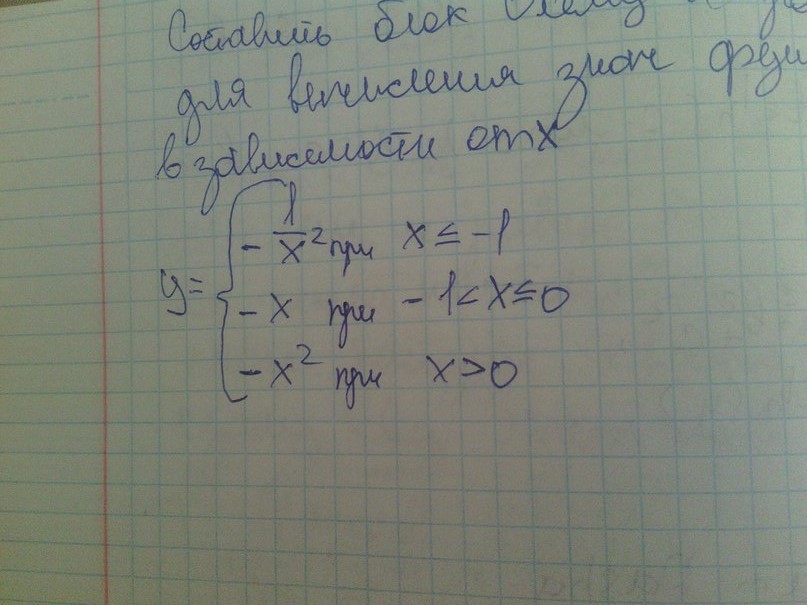 Составить блок схему и
для вычисления знач
в зависимости от x
y = { - 1/x² при x ≤ -1
- x при - 1 < x ≤ 0
- x² при x > 0